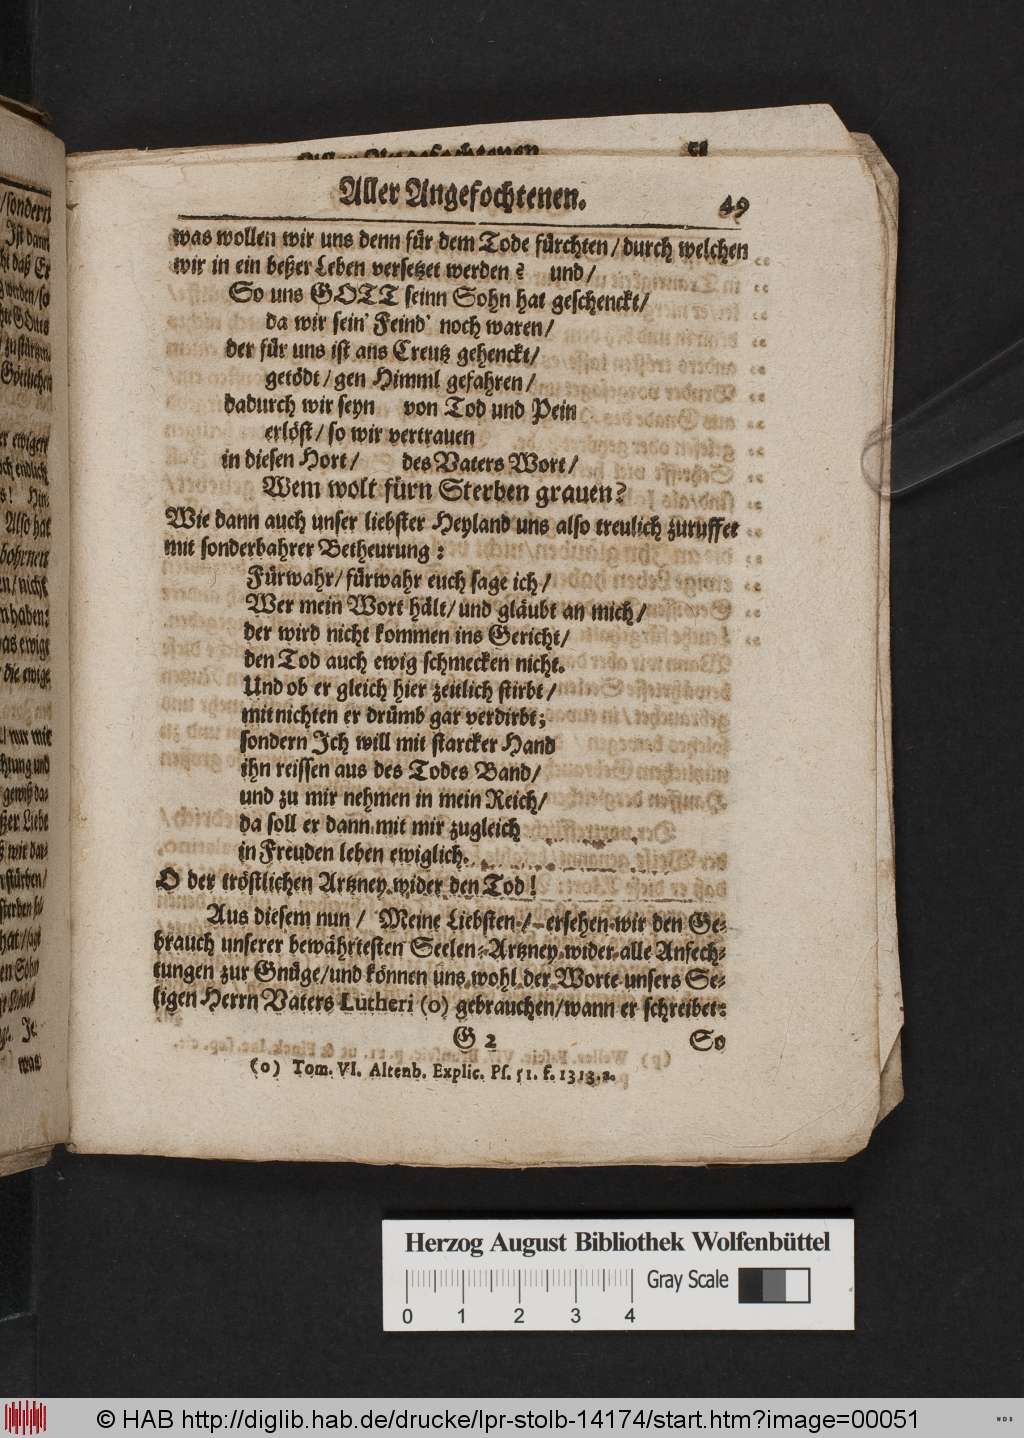 Aller Angefochtenen. 49
was wollen wir uns denn für dem Tode fürchten/ durch welchen
wir in ein beßer Leben versetzet werden? und/
So uns GOTT seinn Sohn hat geschenckt/
da wir sein' Feind' noch waren/
der für uns ist ans Creutz gehenckt/
getödt/ gen Himml gefahren/
dadurch wir seyn von Tod und Pein
erlöst/ so wir vertrauen
in diesen Hort/ des Vaters Wort/
Wem wolt fürn Sterben grauen?
Wie dann auch unser liebster Heyland uns also treulich zuruffet
mit sonderbahrer Betheurung:
Fürwahr/ fürwahr euch sage ich/
Wer mein Wort hält/ und gläubt an mich/
der wird nicht kommen ins Gericht/
den Tod auch ewig schmecken nicht.
Und ob er gleich hier zeitlich stirbt/
mit nichten er drümb gar verdirbt;
sondern Ich will mit starcker Hand
ihn reissen aus des Todes Band/
und zu mir nehmen in mein Reich/
da soll er dann mit mir zugleich
in Freuden leben ewiglich.
O der tröstlichen Artzney wider den Tod!
Aus diesem nun/ Meine Liebsten/ ersehen wir den Ge-
brauch unserer bewährtesten Seelen-Artzney wider alle Anfech-
tungen zur Gnüge/ und können uns wohl der Worte unsers Se-
ligen Herrn Vaters Lutheri (o) gebrauchen/ wann er schreibet:
G 2 So
(o) Tom. VI. Altenb. Explic. Pſ. 51. f. 1313.a.
Herzog August Bibliothek Wolfenbüttel
Gray Scale
0 1 2 3 4
© HAB http://diglib.hab.de/drucke/lpr-stolb-14174/start.htm?image=00051